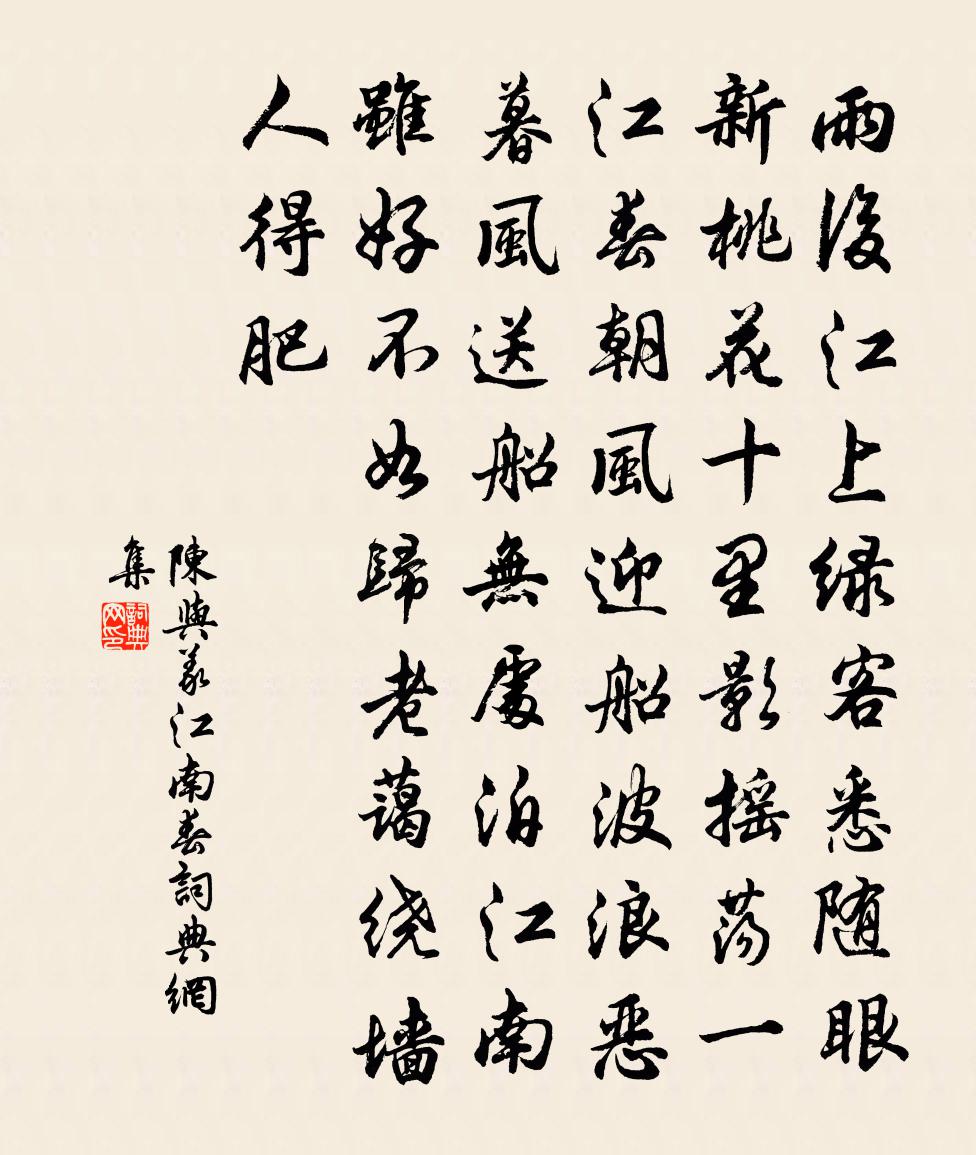 雨後江上绿客悉随眼
新桃花十里影摇荡一
江春朝風迎船波浪恶
暮風送船無處泊江南
雖好不如歸老藹绕墙
人得肥
陳與義江南春詞典網
集
詞典
网印